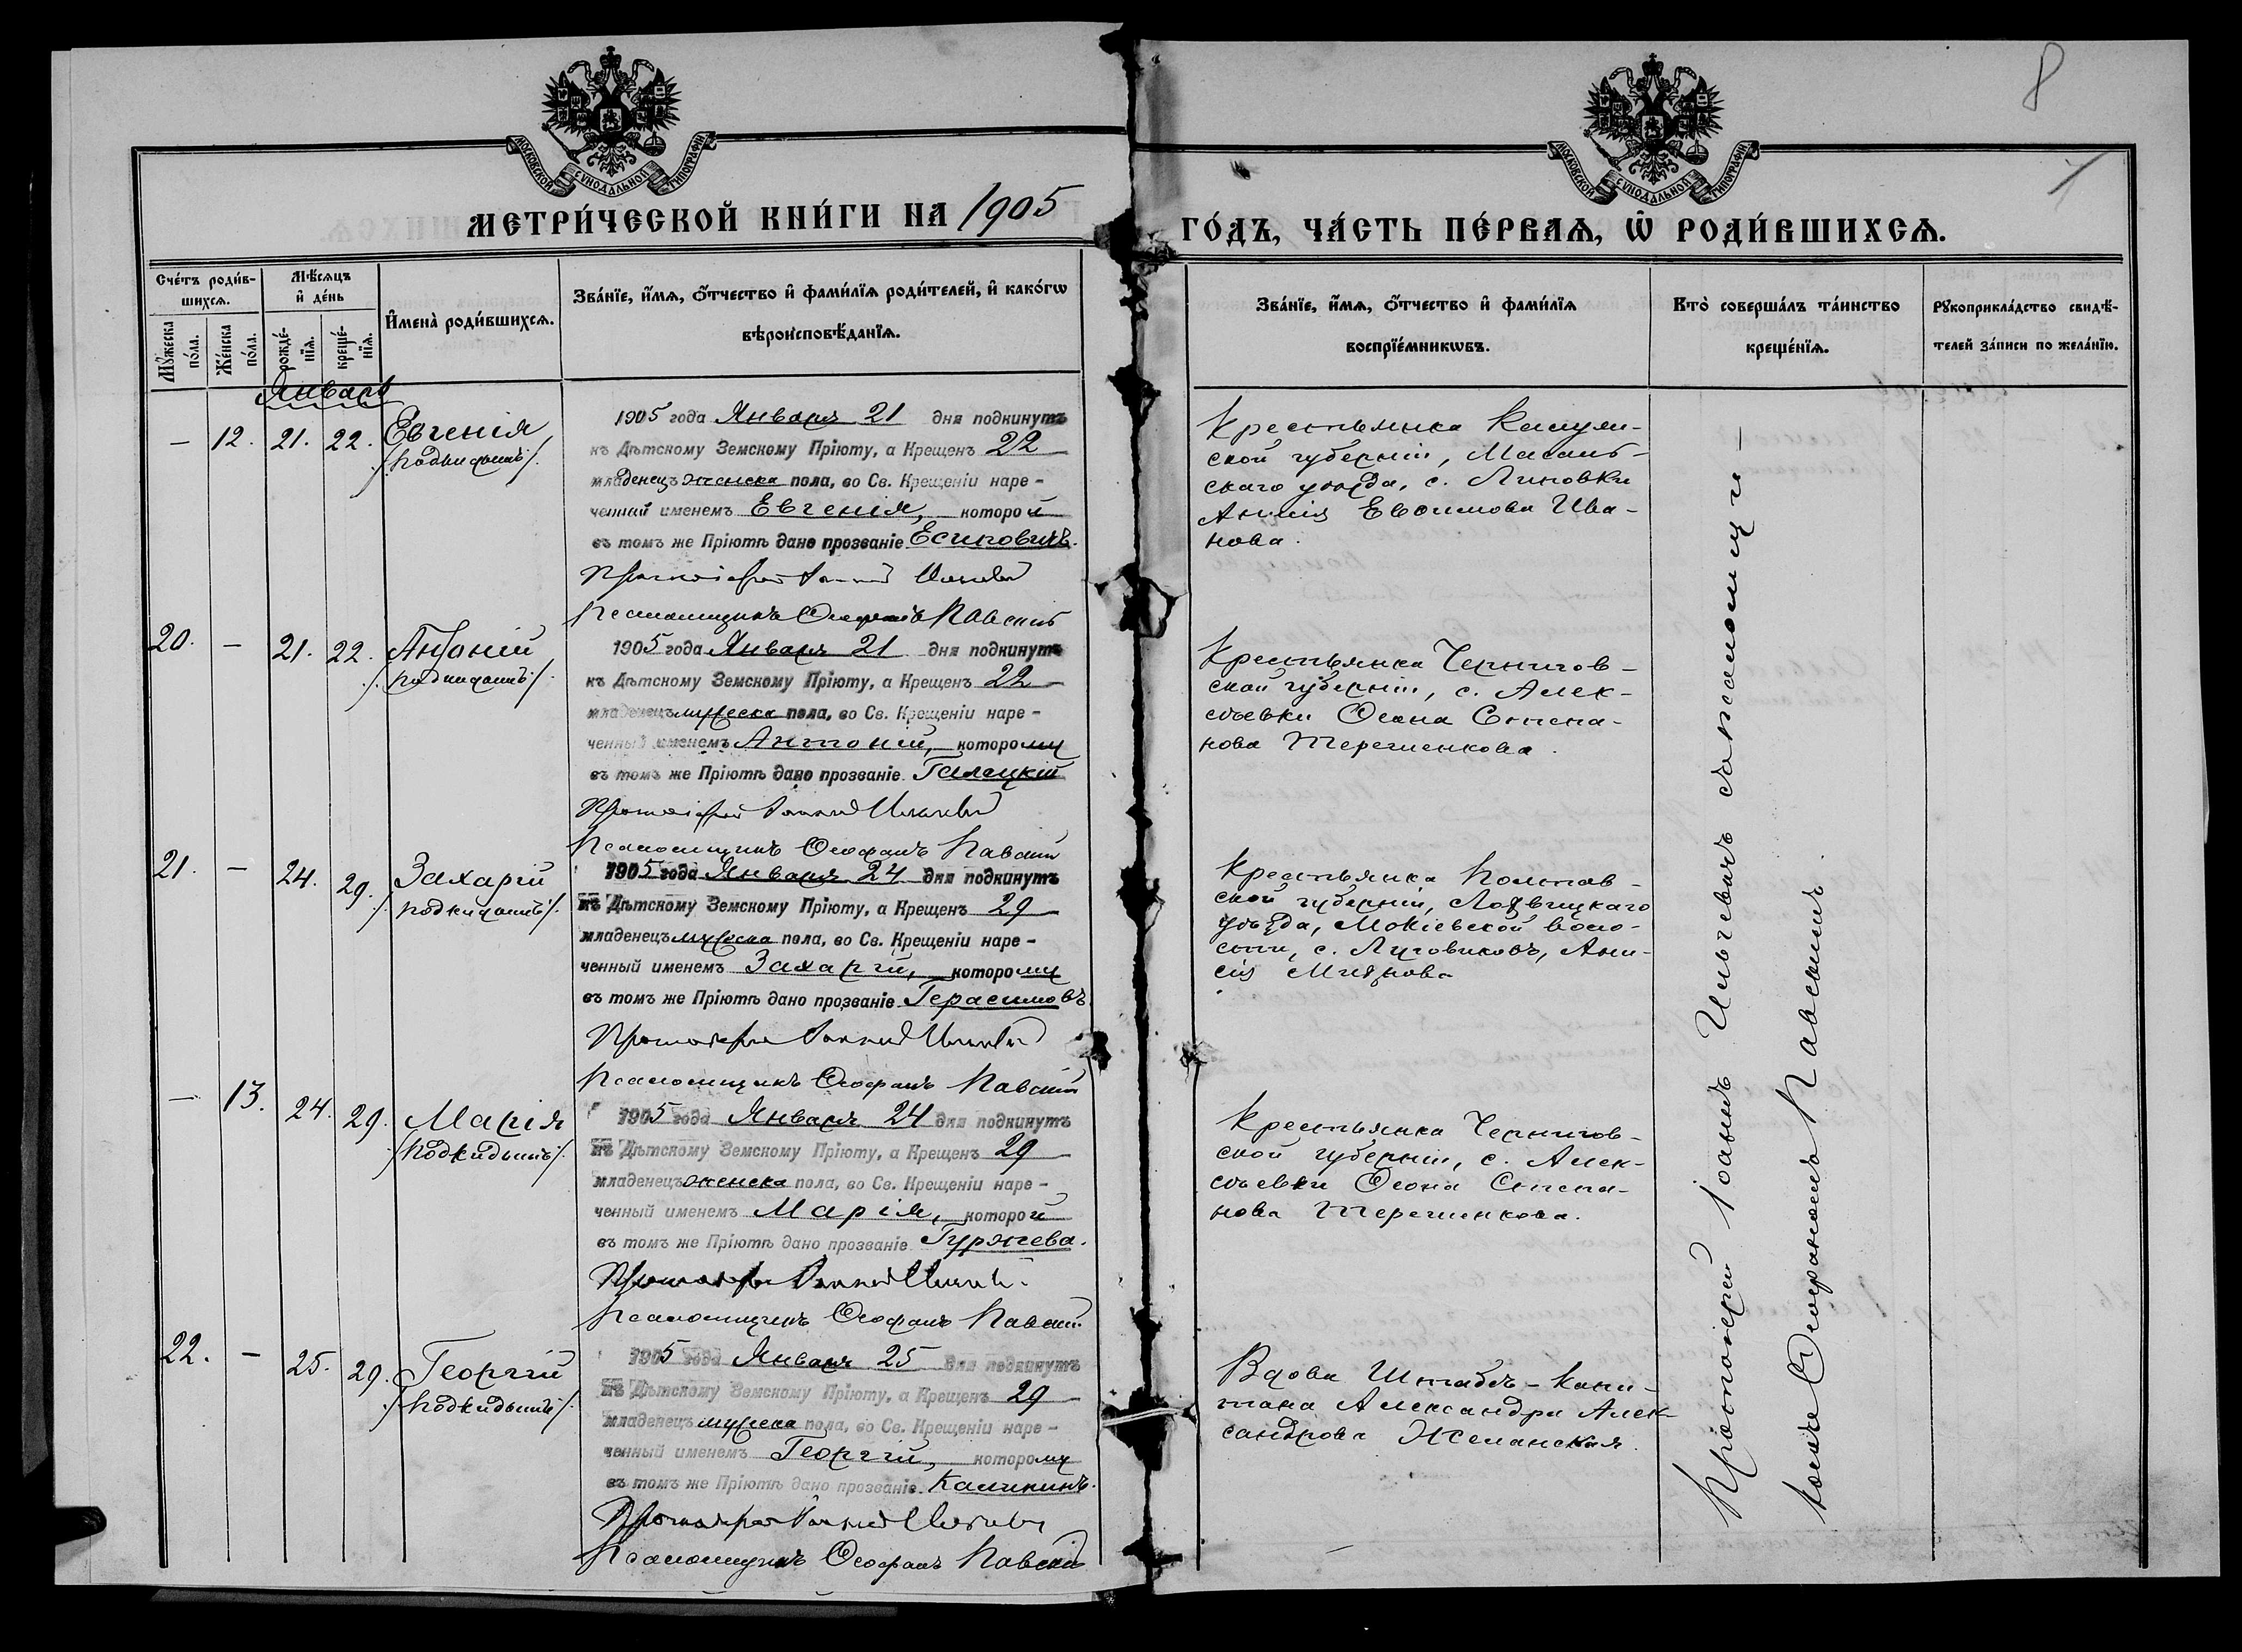 8
МОСКОВСКОЙ СУНОДАЛЬНОЙ ТИПОГРАФІИ
МОСКОВСКОЙ СУНОДАЛЬНОЙ ТИПОГРАФІИ
МЕТРИ́ЧЕСКОЙ КНИ́ГИ НА 1905
ГО́ДЪ, ЧА́СТЬ ПЕ́РВАѦ, Ѡ҆ РОДИ́ВШИХСѦ.
Сче́тъ роди́в-
шихсѧ.
Мѣ́сѧцъ
и҆ де́нь
И҆мена̀ роди́вшихсѧ.
Зва́нїе, и҆́мѧ, ѻ҆́тчество и҆ фами́лїѧ роди́телей, и҆ како́гѡ
вѣроисповѣ́данїѧ.
Зва́нїе, и҆́мѧ, ѻ҆́тчество и҆ фами́лїѧ
воспрїе́мникѡвъ.
Кто̀ соверша́лъ та́инство
креще́нїѧ.
Рꙋкоприкла́дство свидѣ́-
телей за́писи по жела́нїю.
Мꙋ́жеска
по́ла.
Же́нска
по́ла.
рожде́-
нїѧ.
креще́-
нїѧ.
Январь
— 12. 21. 22. Евгенія
/подкидышъ/.
1905 года Января 21 дня подкинутъ
къ Дѣтскому Земскому Пріюту, а Крещенъ 22
младенецъ женска пола, во Св. Крещеніи наре-
ченный именемъ Евгенія, которой
въ томъ же Пріютѣ дано прозваніе Есиповичъ.
Протоіерей Іоаннъ
Псаломщикъ Ѳеофанъ Павскій
Крестьянка
ской губерніи,
скаго уѣзда, с. Липовки
Анна Евфимова Ива-
нова.
20. — 21. 22. Антоній
/подкидышъ/.
1905 года Января 21 дня подкинутъ
къ Дѣтскому Земскому Пріюту, а Крещенъ 22
младенецъ мужеска пола, во Св. Крещеніи наре-
ченный именемъ Антоній, которому
въ томъ же Пріютѣ дано прозваніе Галецкій
Протоіерей Іоаннъ
Псаломщикъ Ѳеофанъ Павскій
Крестьянка Чернигов-
ской губерніи, с. Алек-
сѣевки Ѳеона Степа-
нова Терешенкова.
21. — 24. 29. Захарій
/подкидышъ/.
1905 года Января 24 дня подкинутъ
къ Дѣтскому Земскому Пріюту, а Крещенъ 29
младенецъ мужеска пола, во Св. Крещеніи наре-
ченный именемъ Захарій, которому
въ томъ же Пріютѣ дано прозваніе Герасимовъ.
Протоіерей Іоаннъ
Псаломщикъ Ѳеофанъ Павскій
Крестьянка Полтав-
ской губерніи, Лохвицкаго
уѣзда, Мокіевской воло-
сти, с. Луговиковъ, Ани-
сія
— 13. 24. 29. Марія
/подкидышъ/.
1905 года Января 24 дня подкинутъ
къ Дѣтскому Земскому Пріюту, а Крещенъ 29
младенецъ женска пола, во Св. Крещеніи наре-
ченный именемъ Марія, которой
въ томъ же Пріютѣ дано прозваніе Гуржева.
Протоіерей Іоаннъ
Псаломщикъ Ѳеофанъ Павскій
Крестьянка Чернигов-
ской губерніи, с. Алек-
сѣевки Ѳеона Степа-
нова Терешенкова.
22. — 25. 29. Георгій
/подкидышъ/.
1905 года Января 25 дня подкинутъ
къ Дѣтскому Земскому Пріюту, а Крещенъ 29
младенецъ мужеска пола, во Св. Крещеніи наре-
ченный именемъ Георгій, которому
въ томъ же Пріютѣ дано прозваніе Калининъ.
Протоіерей Іоаннъ
Псаломщикъ Ѳеофанъ Павскій
Вдова Штабсъ-Капи-
тана Александра Алек-
сандрова Желанская.
Протоіерей Іоаннъ Ильичевъ съ псаломщи-
комъ Ѳеофаномъ Павскимъ.